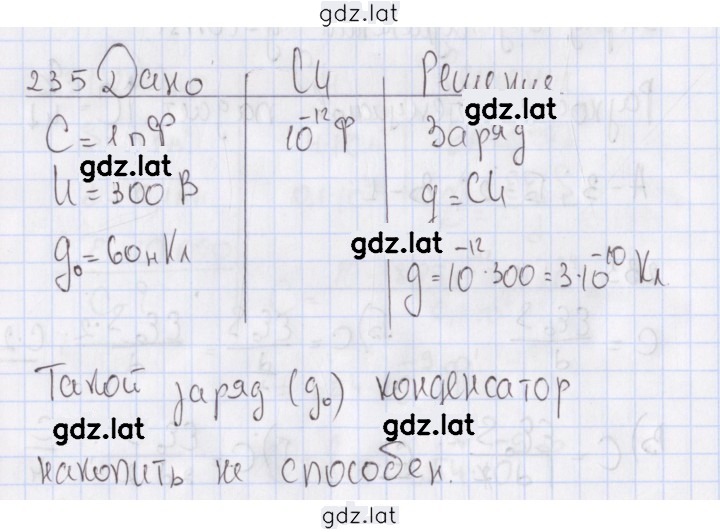 gdz.lat
235 Дано СИ Решение.
C = 1 пФ 10⁻¹² Ф Заряд
gdz.lat gdz.lat
U = 300 В q = CU
gdz.lat
q₀ = 60 нКл q = 10⁻¹² · 300 = 3 · 10⁻¹⁰ Кл
Такой заряд (q₀) конденсатор
gdz.lat gdz.lat
накопить не способен.
gdz.lat